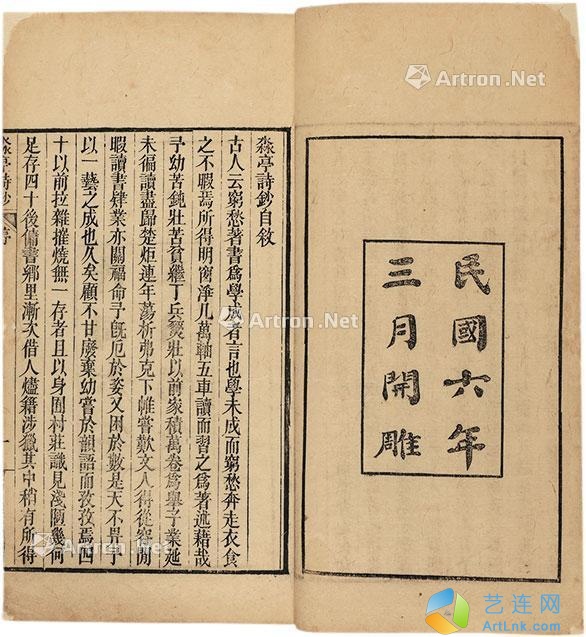 民國六年
三月開雕
淼亭詩鈔自敘
古人云窮愁著書爲學成者言也學未成而窮愁奔走衣食
之不暇焉所得明窗淨几萬軸五車讀而習之爲著述藉哉
予幼苦鈍壯苦貧繼丁兵燹壯以前家積萬卷爲舉子業延
未徧讀盡歸楚炬連年蕩析弗克下帷嘗歎文人得從容閒
暇讀書肄業亦關福命予旣厄於姿又困於數是天不畀予
以一藝之成也久矣顧不甘廢棄幼嘗於韻語而孜孜焉四
十以前拉雜摧燒無一存者且以身囿村莊識見淺陋幾何
足存四十後傭書鄉里漸次借人燼籍涉獵其中稍有所得
淼亭詩鈔 序 一
Artron.Net
Artron.Net
Artron.Net
Artron.Net
艺连网
ArtLnk.com